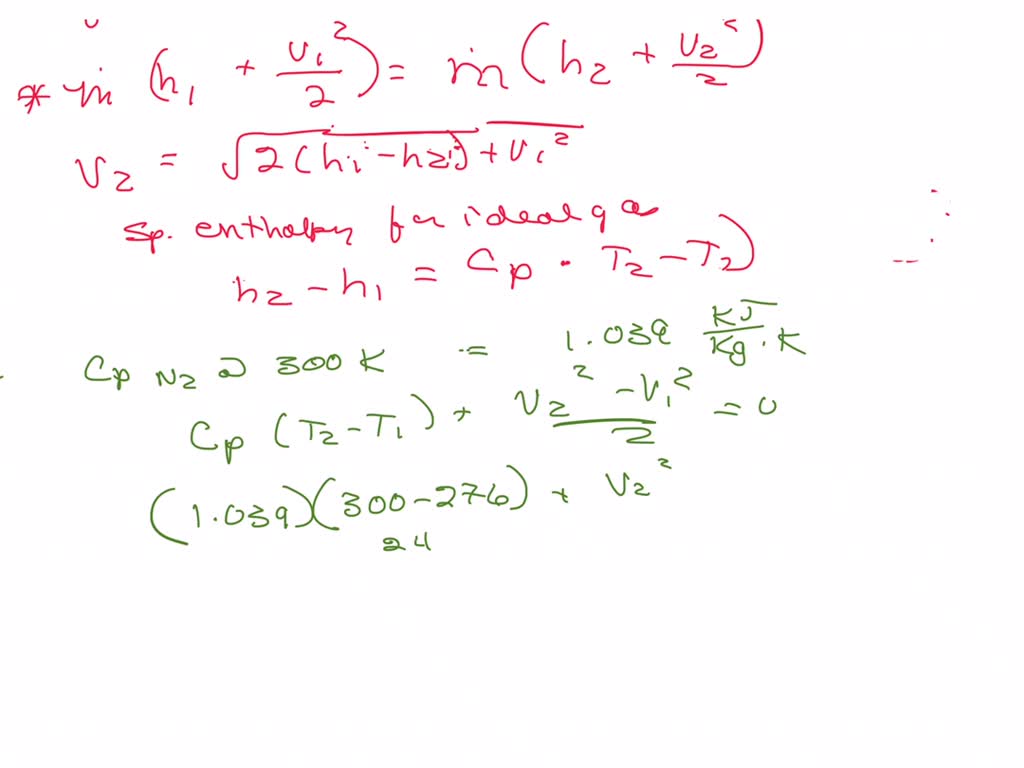 * ṁ (h₁ + v₁²/2) = ṁ (h₂ + v₂²/2)
v₂ = √2(h₁ - h₂) + v₁²
Sp. enthalpy for ideal ga
h₂ - h₁ = Cp · T₂ - T₂)
Cp N₂ @ 300 K = 1.039 KJ/Kg · K
Cp (T₂ - T₁) + v₂² - v₁²/2 = 0
(1.039)(300 - 276) + v₂²
24